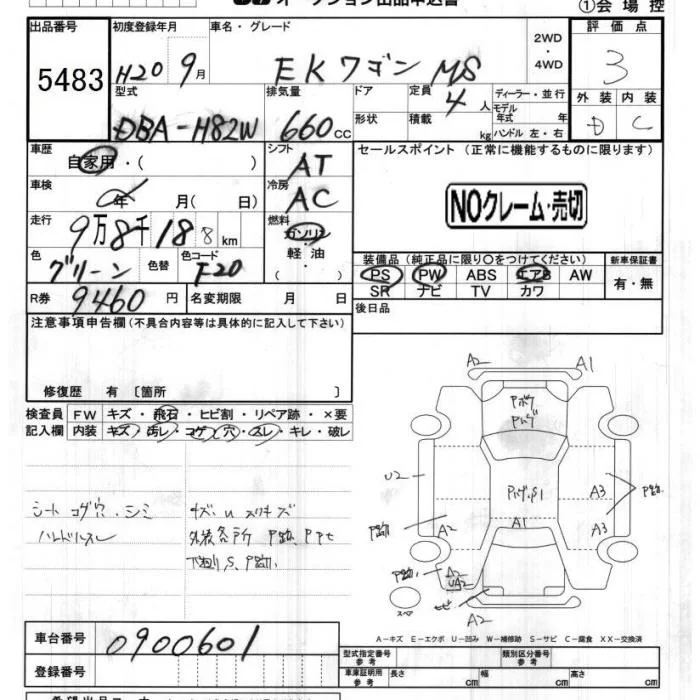 オークション出品申込書
①会場控
出品番号 初度登録年月 車名・グレード 評価点
5483 H20 9月 EKワゴン MS 2WD・4WD 3
型式 排気量 ドア 定員 4人 ディーラー・並行 外装 内装
DBA-H82W 660cc 形状 積載 kg モデル年式 年 D C
ハンドル 左・右
車歴 シフト セールスポイント(正常に機能するものに限ります)
自家用・( ) AT
車検 冷房
年 月( 日) AC NOクレーム・売切
走行 燃料
9万8千188km ガソリン・軽油
色 色替 色コード 装備品(純正品に限り○をつけてください) 新車保証書
グリーン F20 PS PW ABS エアB AW 有・無
SR ナビ TV カワ
R券 9460円 名変期限 月 日 後日品
注意事項申告欄(不具合内容等は具体的に記入して下さい)
修復歴 有 〔箇所 〕
検査員 FW キズ・飛石・ヒビ割・リペア跡・×要
記入欄 内装 キズ・汚レ・コゲ・穴・スレ・キレ・破レ
シート コゲ穴・シミ
キズ u スリキズ
外装各所
A2 A1
U2
A3
A1
A2 A3
A2
UA2
A2
スペア
A－キズ E－エクボ U－凹み W－補修跡 S－サビ C－腐食 XX－交換済
車台番号 0900601
型式指定番号 参考 類別区分番号 参考
登録番号 車庫証明用 参考 長さ cm 幅 cm 高さ cm
希望出品コーナー